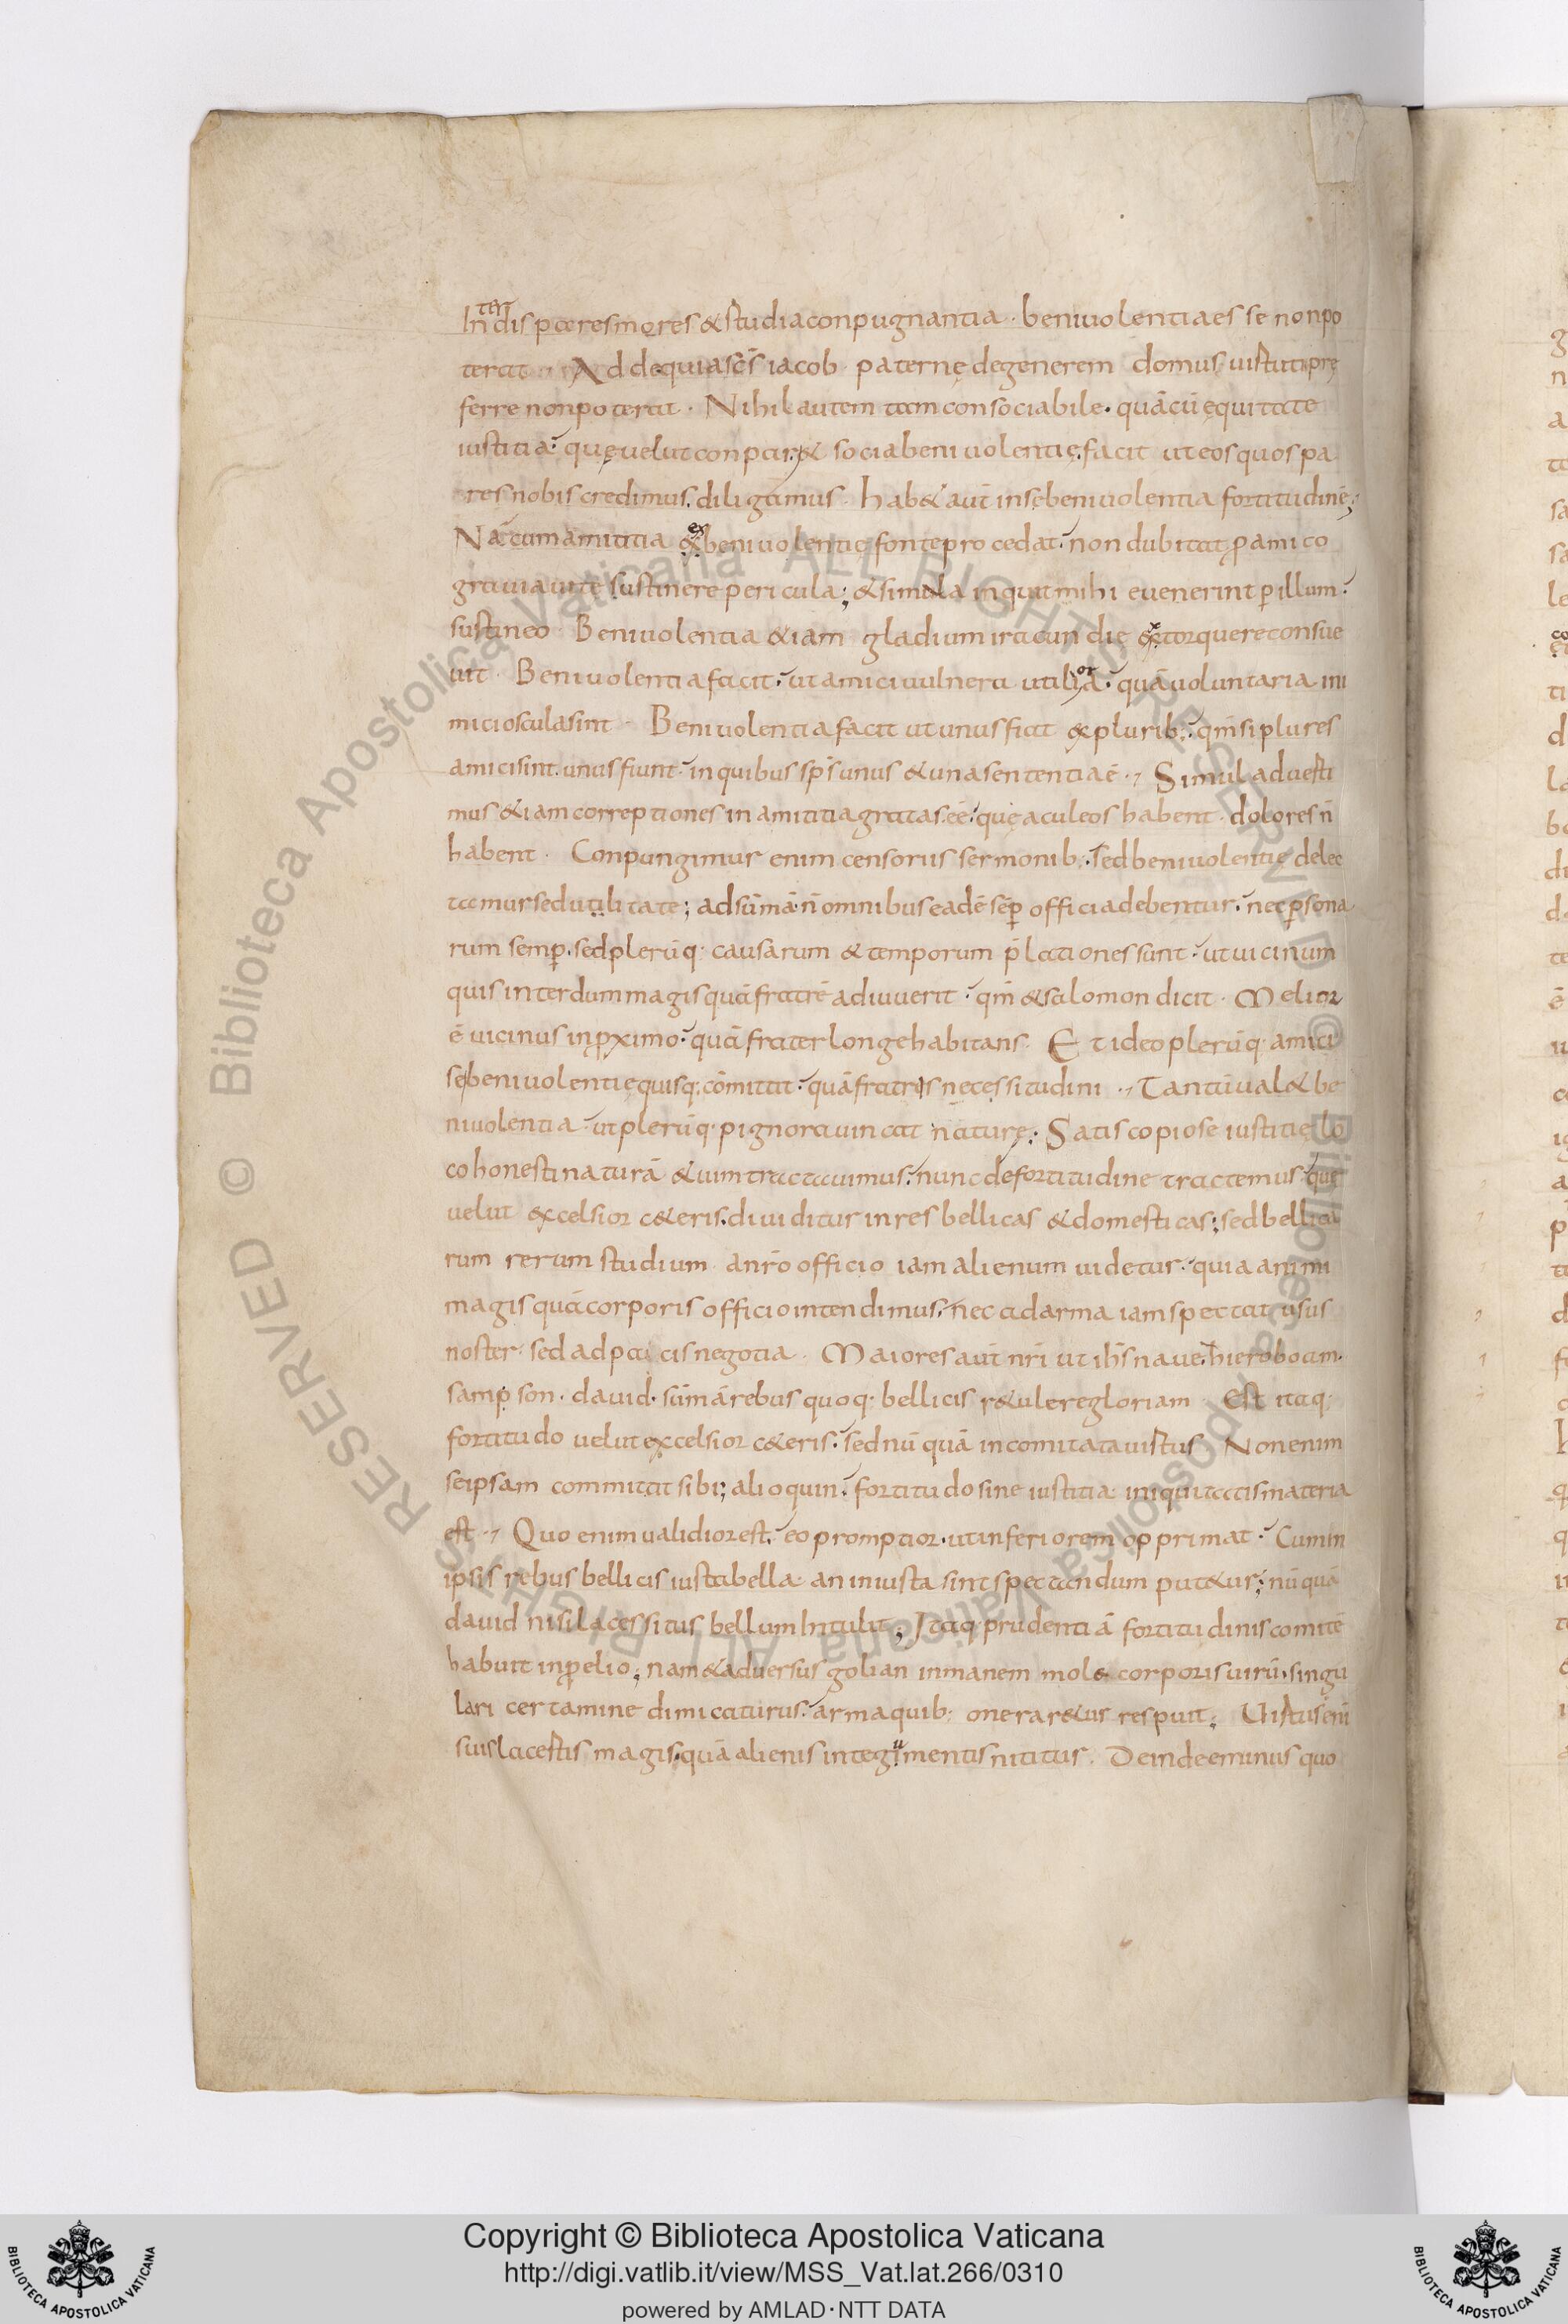 Inter dispares mores & studia conpugnantia · beniuolentia esse non po
terat · Adde quia scs̄ iacob paternę degenerem domus iustiti prę
ferre non poterat · Nihil autem tam consociabile · quā cū ęquitate
iustitia · quę uelut conpar & socia beniuolentię facit ut eos quos pa
res nobis credimus diligamus · hab& aut̄ in se beniuolentia fortitudinē;
Nā cum amititia ex beniuolentię fonte procedat · non dubitat ꝓ amico
grauia uitę sustinere pericula; & si mala inquit mihi euenerint ꝑ illum ·
sustineo · Beniuolentia &iam gladium iracundię extorquere consue
uit · Beniuolentia facit · ut amici uulnera utiliora · quā uoluntaria ini
mici oscula sint · Beniuolentia facit ut unus fiat ex plurib; · qm̄ si plures
amici sint · unus fiunt · in quibus sps̄ unus & una sententia ē · Simul aduerti
mus &iam correptiones in amititia gratas eē · quę aculeos habent · dolores n̄
habent · Conpungimur enim censoriis sermonib; · sed beniuolentię delec
tamur sedulitate; ad sūmā n̄ omnibus eadē sēꝑ officia debentur · nec ꝑsona
rum semꝑ · sed plerūq; causarum & temporum p̄lationes sunt · ut uicinum
quis interdum magis quā fratrē adiuuerit · qm̄ & salomon dicit · Melior
ē uicinus in ꝓximo · quā frater longe habitans · Et ideo plerūq; amici
se beniuolentię quisq; cōmittit · quā fratris necessitudini · Tantū ual& be
niuolentia · ut plerūq; pignora uincat naturę; Satis copiose iustitię lo
co honesti naturā & uim tractauimus · nunc de fortitudine tractemus · quę
uelut excelsior c&eris · diuiditur in res bellicas & domesticas; sed bellica
rum rerum studium a nr̄o officio iam alienum uidetur · quia animi
magis quā corporis officio intendimus · nec ad arma iam spectat usus
noster · sed ad pacis negotia · Maiores aut̄ nr̄i ut ihs̄ naue · hierobocim ·
sampson · dauid · sūmā rebus quoq; bellicis r&ulere gloriam · Est itaq;
fortitudo uelut excelsior c&eris · sed nū quā incomitata uirtus · Non enim
se ipsam committit sibi; alioquin · fortitudo sine iustitia iniquitatis materia
est · Quo enim ualidior est · eo promptior · ut inferiorem opprimat · Cum in
ipsis rebus bellicis iusta bella an iniusta sint spectandum put&ur; nū quā
dauid nisi lacessitus bellum intulit; Itaq; prudentiā fortitudinis comitē
habuit in ꝓelio; nam & aduersus golian inmanem mole corporis uirū · singu
lari certamine dimicaturus · arma quib; onerar&ur respuit; Uirtus eni
suis lacertis magis · quā alienis integumentis nititur · Deinde eminus quo
Copyright © Biblioteca Apostolica Vaticana
http://digi.vatlib.it/view/MSS_Vat.lat.266/0310
powered by AMLAD·NTT DATA